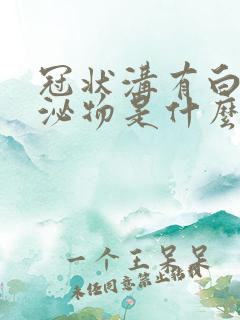 冠状溝有白
泌物是什麽
一个王呆呆
未经同意禁止转载